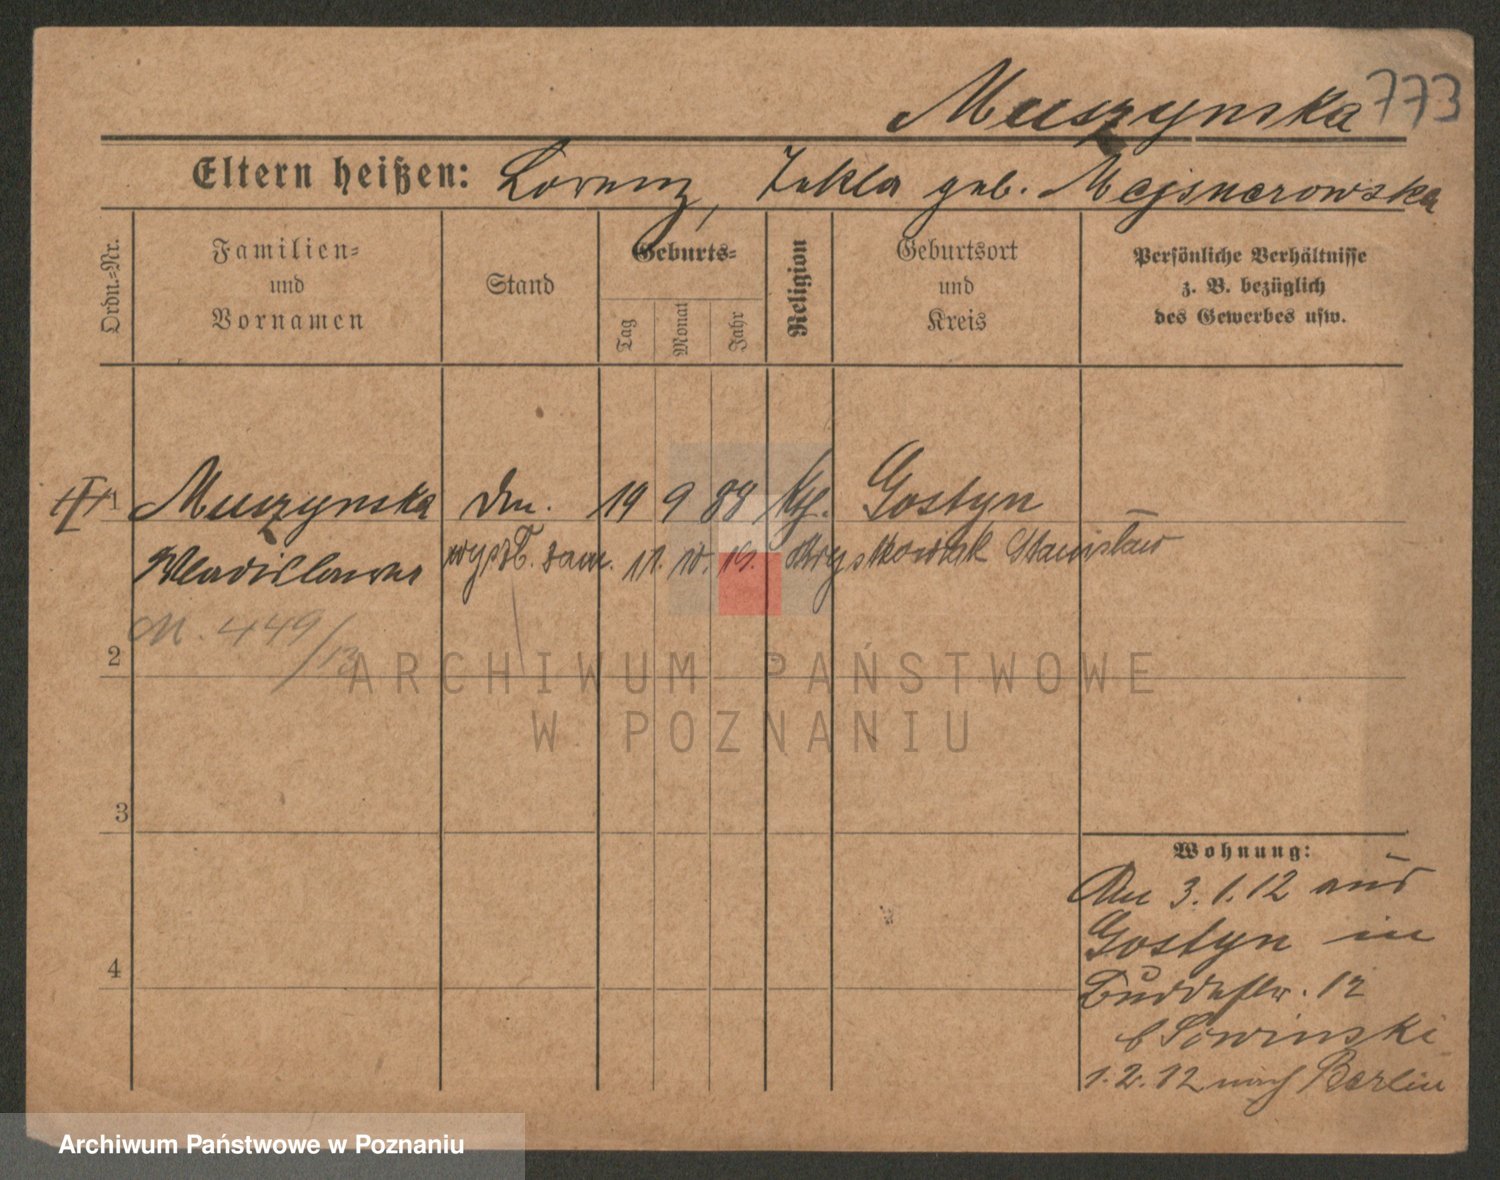 Muszynska 773
Eltern heißen: Lorenz, Tekla geb. Mejsnerowska
Ordn.-Nr.
Familien-
und
Vornamen
Stand
Geburts-
Tag
Monat
Jahr
Religion
Geburtsort
und
Kreis
Persönliche Verhältnisse
z. B. bezüglich
des Gewerbes usw.
1 Muszynska 19 9 88 Gostyn
Wladislawa 11. 10. Stanisław
M. 449/13
2
3
4
Wohnung:
3.1.12 aus
Gostyn in
Buddestr. 12
b Sowinski
1.2.12 nach Berlin
ARCHIWUM PAŃSTWOWE
W POZNANIU
Archiwum Państwowe w Poznaniu